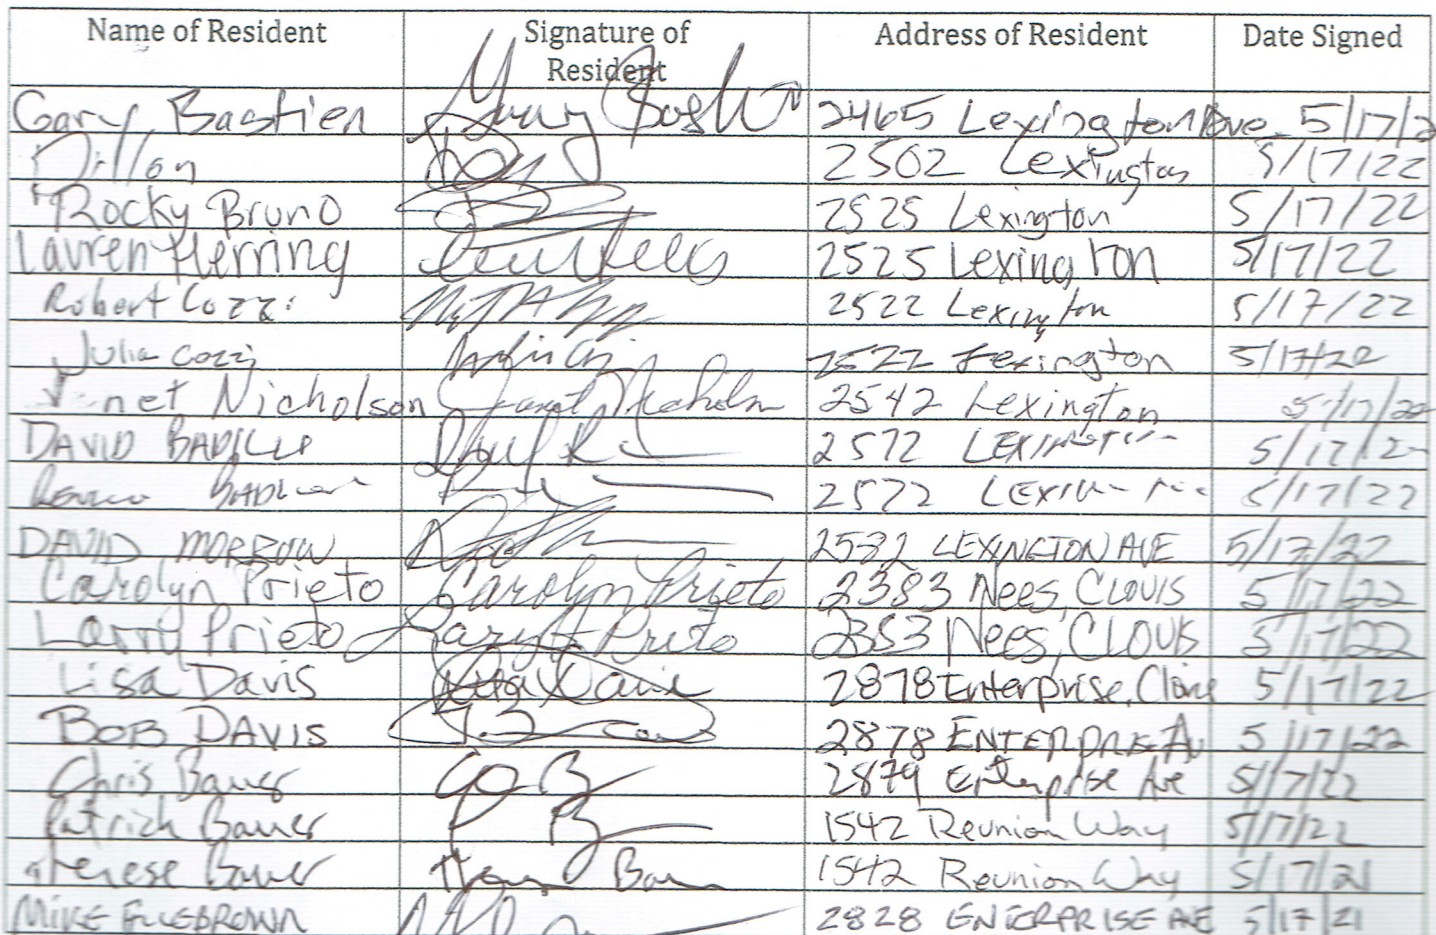 Name of Resident Signature of Resident Address of Resident Date Signed
Gary Bastien 2465 Lexington Ave 5/17/2
Dillon 2502 Lexington 5/17/22
Rocky Bruno 2525 Lexington 5/17/22
Lauren Herring 2525 Lexington 5/17/22
Robert Cozzi 2522 Lexington 5/17/22
Julia Cozzi 2522 Lexington 5/17/22
Janet Nicholson Janet Nicholson 2542 Lexington 5/17/22
DAVID BADILLO 2572 LEXINGTON 5/17/22
2572 LEXINGTON 5/17/22
DAVID MORROW 2532 LEXINGTON AVE 5/17/22
Carolyn Prieto Carolyn Prieto 2383 Nees, CLOVIS 5/17/22
Larry Prieto Larry Prieto 2353 Nees, CLOVIS 5/17/22
Lisa Davis Lisa Davis 2878 Enterprise, Clovis 5/17/22
BOB DAVIS 2878 ENTERPRISE AV 5/17/22
Chris Bauer 2879 Enterprise Ave 5/17/22
Patrick Bauer 1542 Reunion Way 5/17/22
Therese Bauer 1542 Reunion Way 5/17/21
MIKE FILLEBROWN 2828 ENTERPRISE AVE 5/17/21